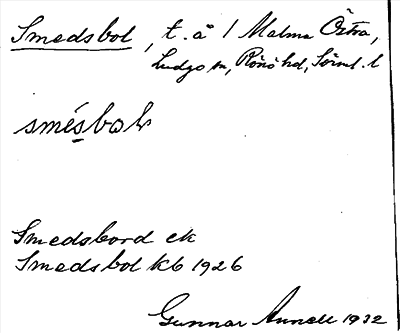 Smedsbol, t. å 1 Malma Östra,
Ludgo sn, Rönö hd, Söml. l
smésbol
Smedsbord ek
Smedsbol kb 1926
Gunnar Annell 1932